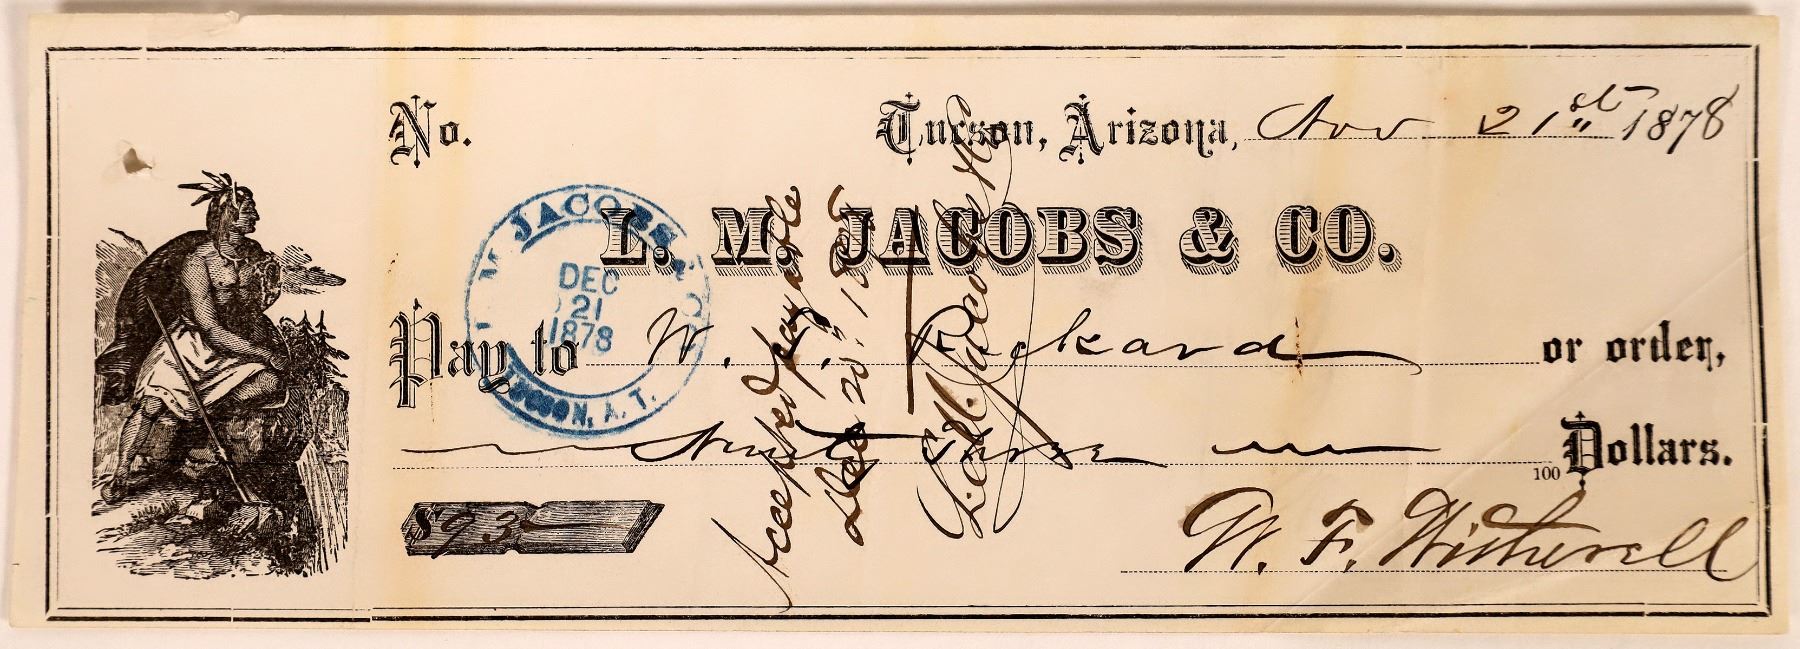 No.
Tucson, Arizona, Nov 21st 1878
L. M. JACOBS & CO.
Pay to W. F. Rickard or order,
Ninety Three
100 Dollars.
$93
W. F. Witherell
L. M. JACOBS & CO.
DEC
21
1878
TUCSON, A. T.
Accepted payable
Dec 20th 1878
L. M. Jacobs & Co